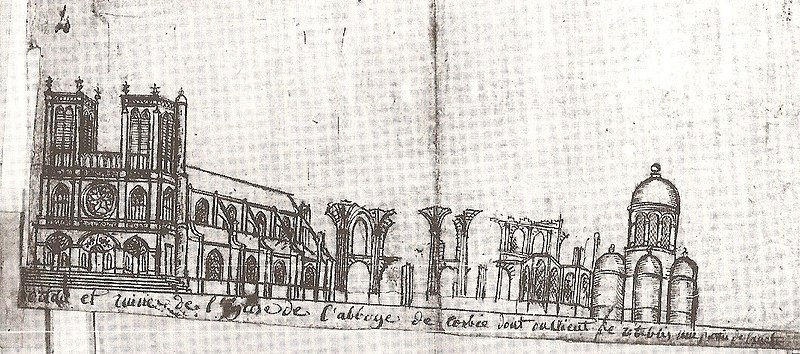 et ruine de l'Eglise de l'abbaye de corbie dont on vient de retablir une partie